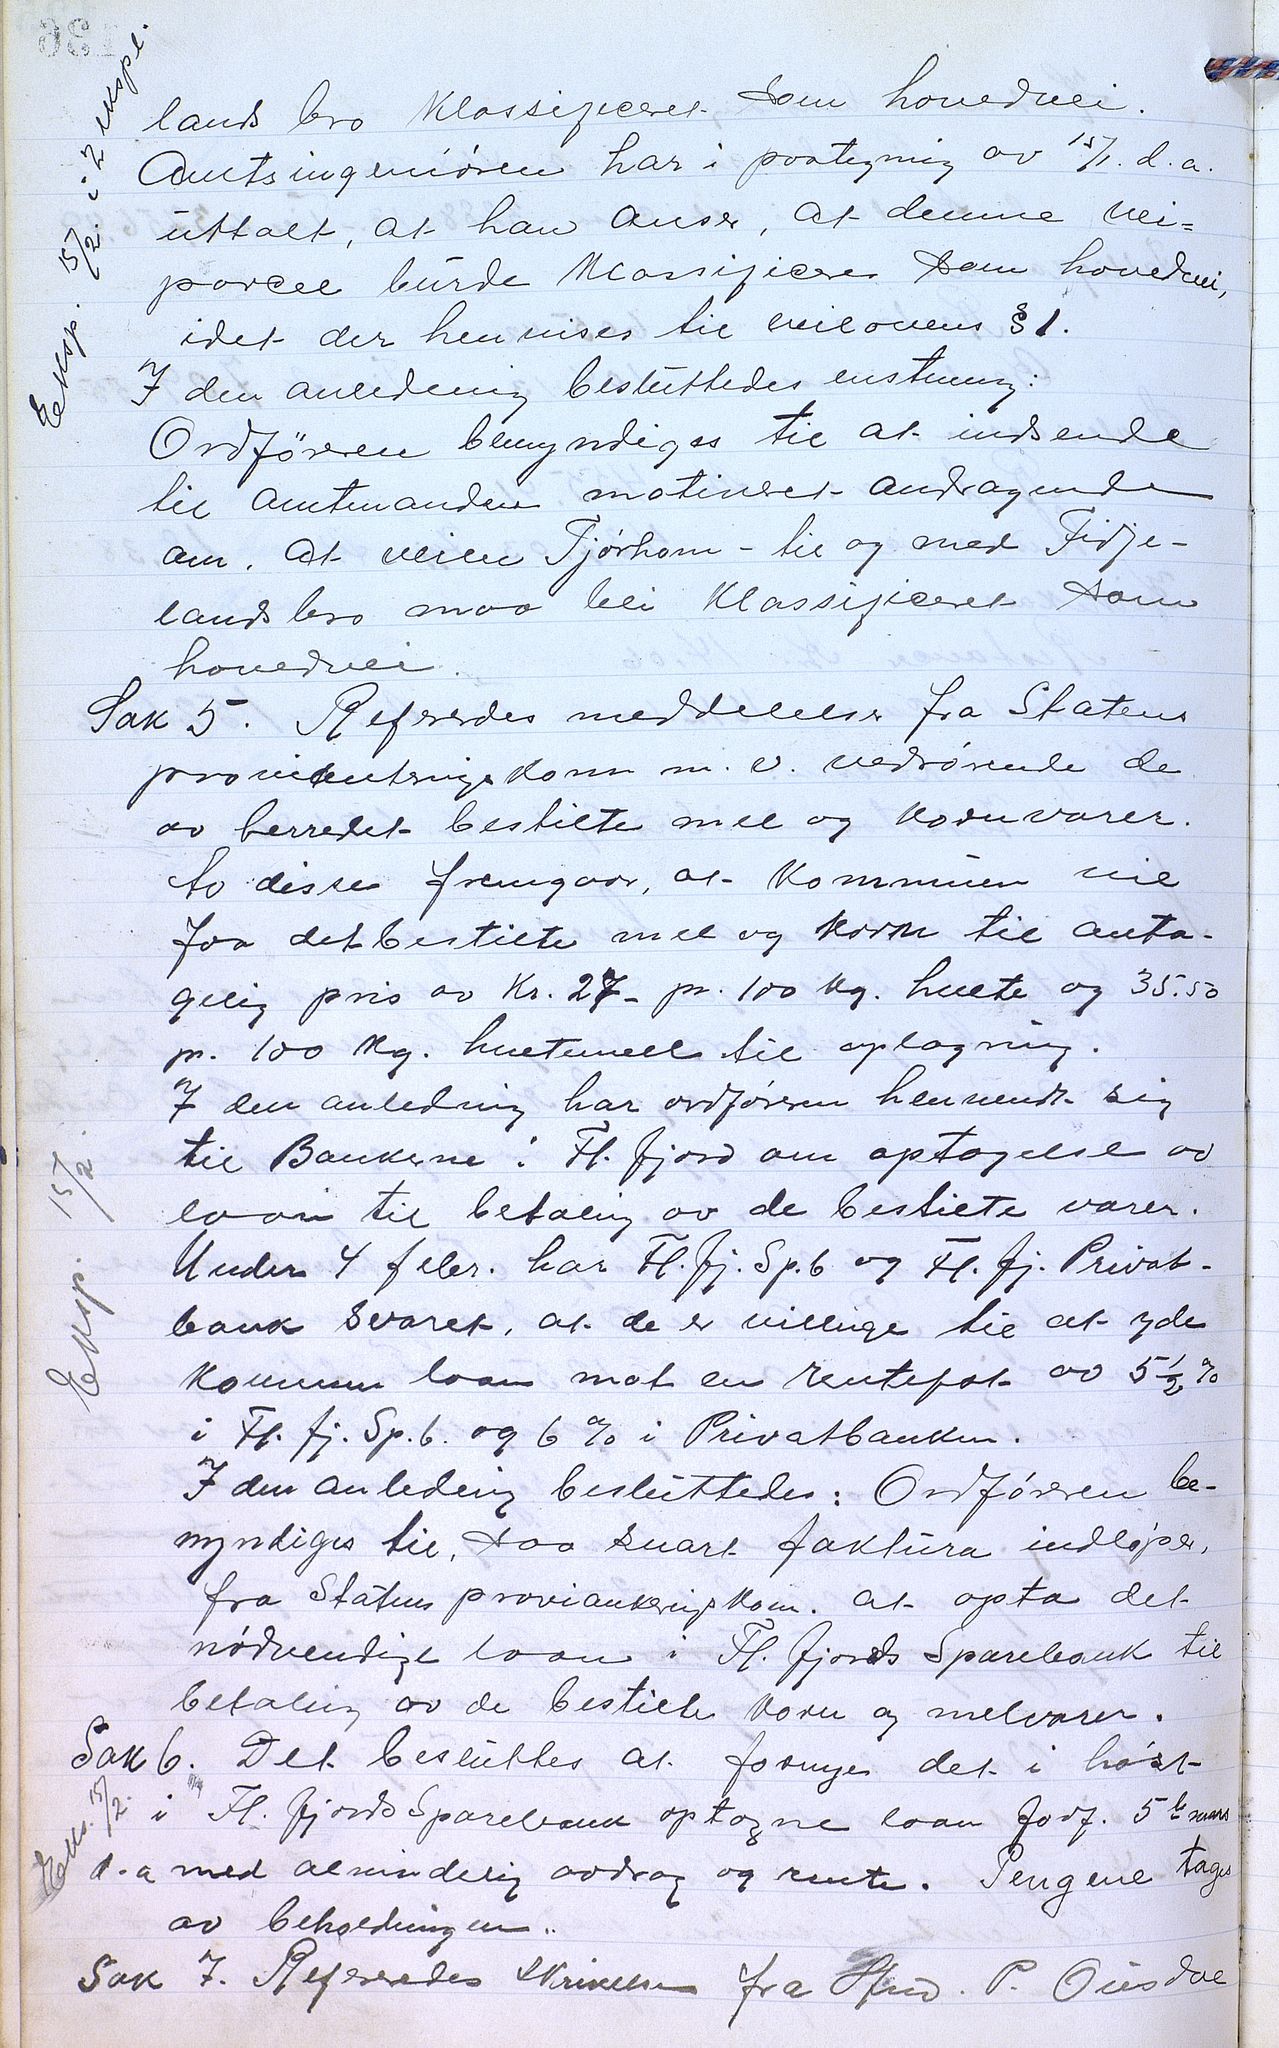 lands bro klassificeret som hovedvei.
Amtsingeniøren har i paategning av 15/1. d.a.
uttalt, at han anser, at denne vei=
parcel burde klassificeres som hovedvei,
idet der henvises til veilovens § 1.
I den anledning besluttedes enstemmig:
Ordføreren bemyndiges til at indsende
til amtmanden motiveret andragende
om, at veien Tjørhom - til og med Fidje-
landsbro maa bli klassificeret som
hovedvei.
Eksp. 15/2. i 2 expl.
Sak 5. Refereredes meddelelser fra Statens
provianteringskom m.v. vedrørende de
av herredet bestilte mel og kornvarer.
Av disse fremgaar, at kommunen vil
faa det bestilte mel og korn til anta-
gelig pris av Kr. 27- pr. 100 kg. hvete og 35.50
pr. 100 kg. hvetemel til oplagring.
I den anledning har ordføreren henvendt sig
til Bankerne i Fl.fjord om optagelse av
laan til betaling av de bestilte varer.
Under 4 febr. har Fl.fj.Sp.b og Fl.fj. Privat-
bank svaret, at de er villige til at yde
kommunen laan mot en rentefot av 5 1/2 %
i Fl.fj.Sp.b. og 6 % i Privatbanken.
I den anledning besluttedes: Ordføreren be-
myndiges til, saa snart faktura indløper,
fra Statens provianteringskom. at opta det
nødvendige laan i Fl.fjords Sparebank til
betaling av de bestilte korn og melvarer.
Eksp. 15/2.
Sak 6. Det besluttes at fornye det i høst
i Fl.fjords Sparebank optagne laan forf. 5te mars
d.a med almindelig avdrag og rente. Pengene tages
av beholdningen.
Eks. 15/2.
Sak 7. Refereredes skrivelse fra Hrd. P. Ousdal